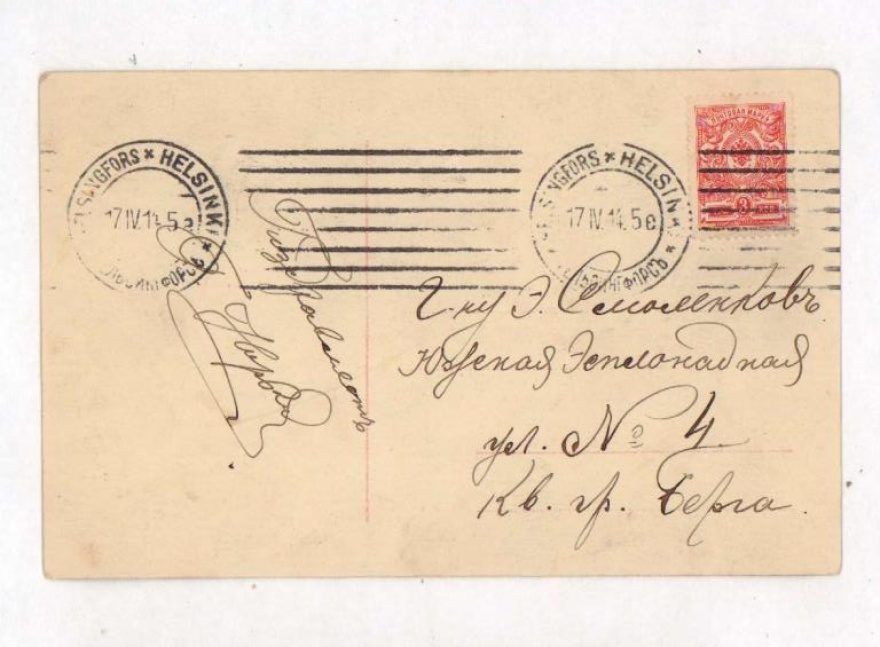 HELSINGFORS * HELSINKI * ГЕЛЬСИНГФОРСЪ *
17 IV. 14. 5 e
HELSINGFORS * HELSINKI * ГЕЛЬСИНГФОРСЪ *
17 IV. 14. 5 e
ПОЧТОВАЯ МАРКА
3 КОП
Поздравляетъ
Г-ну Э. Смоленковъ
Южская Эсплонадная
ул. № 4
Кв. гр. Берга.